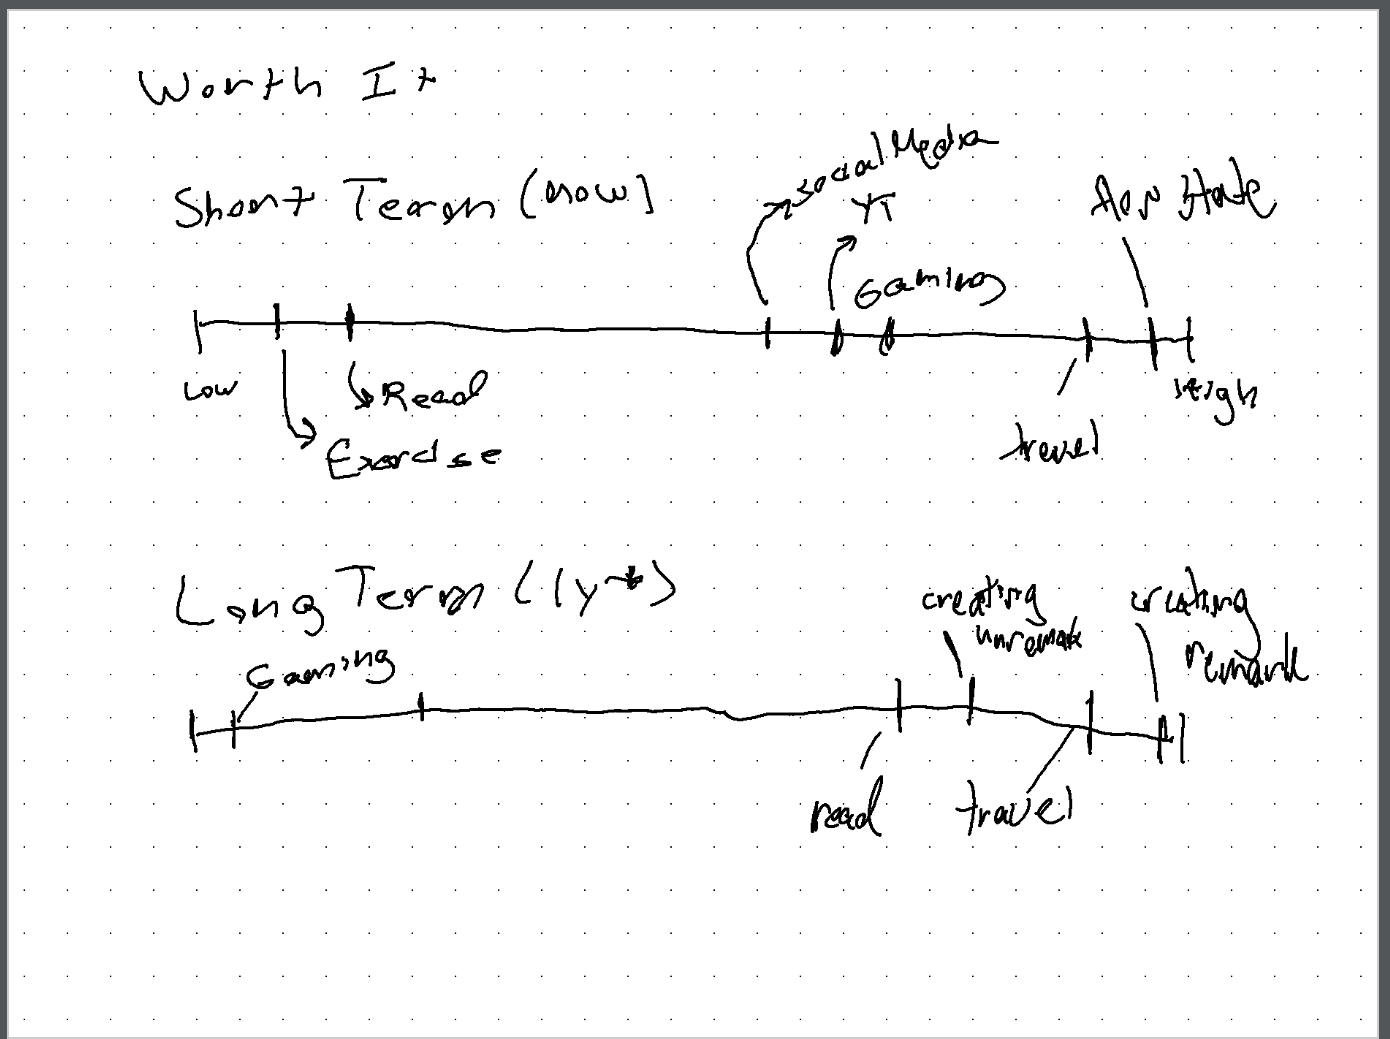 Worth It
Short Term (now)
social Media
YT
Gaming
flow state
Low
Read
Exercise
travel
High
Long Term (1y+)
Gaming
creating
unremark
creating
remark
read
travel